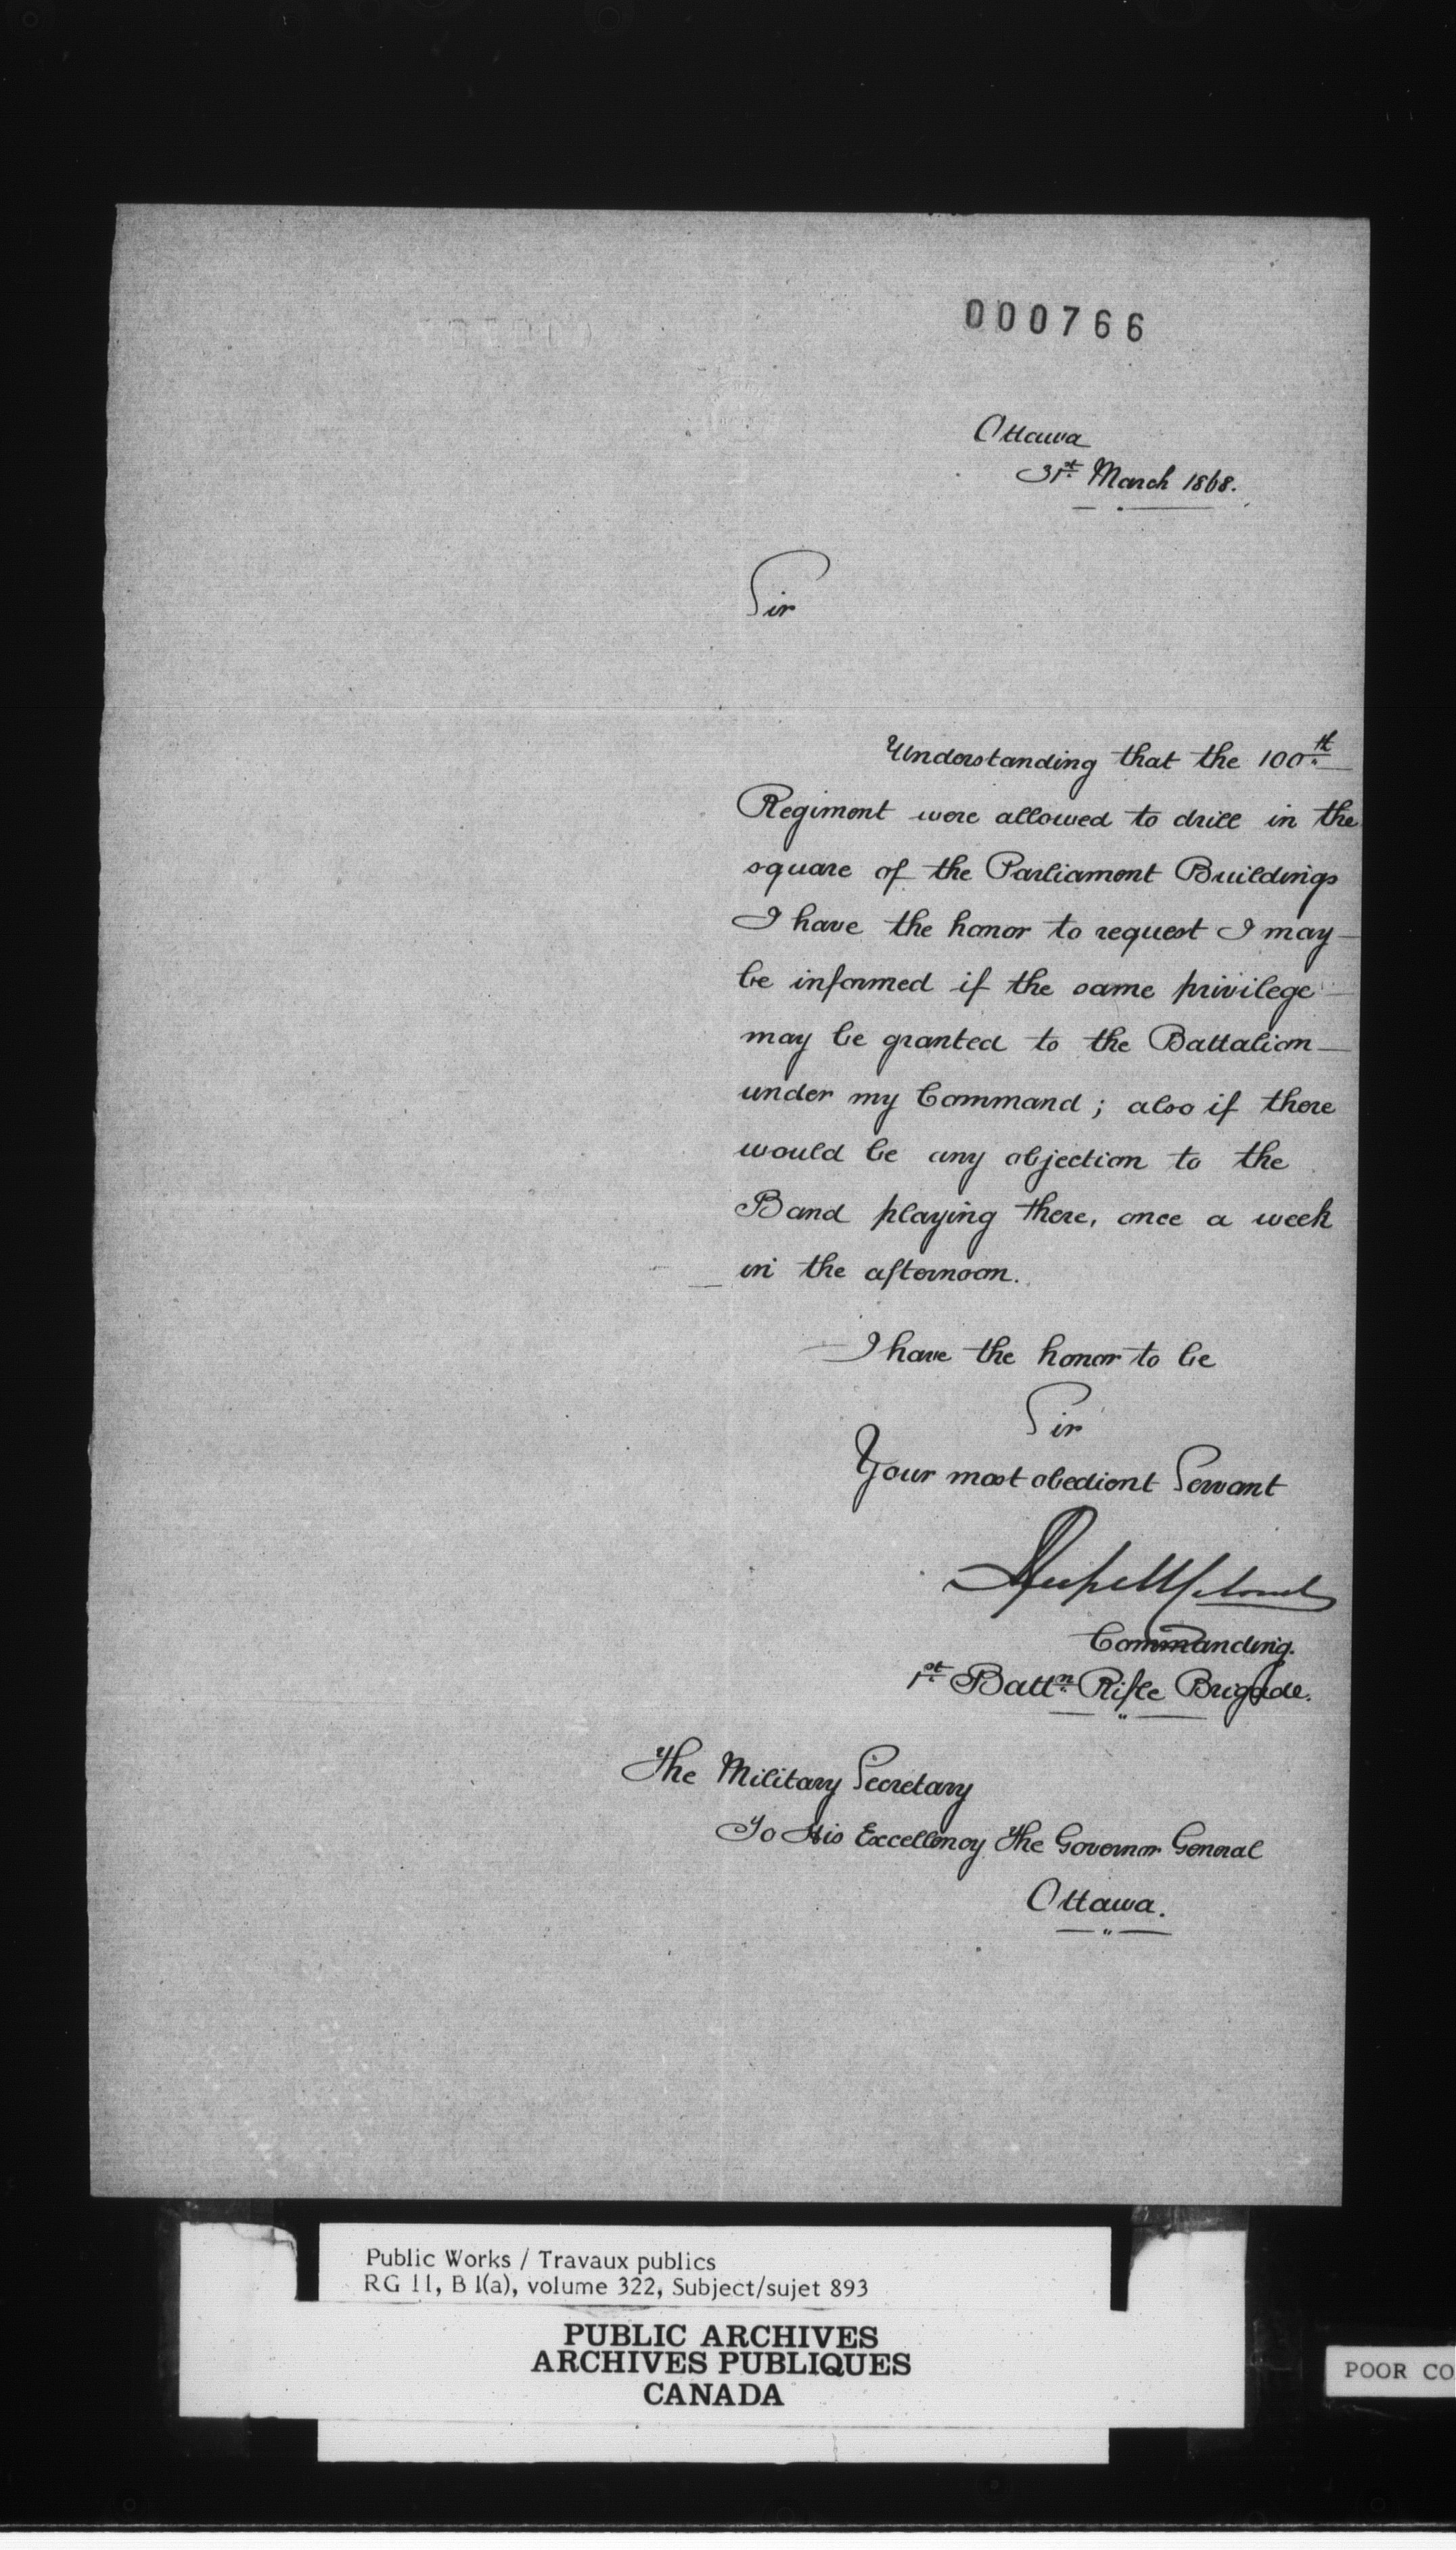 000766
Ottawa
31st March 1868.
Sir
Understanding that the 100th
Regiment were allowed to drill in the
square of the Parliament Buildings
I have the honor to request I may
be informed if the same privilege
may be granted to the Battalion
under my Command; also if there
would be any objection to the
Band playing there, once a week
in the afternoon.
I have the honor to be
Sir
Your most obedient Servant
Commanding.
1st Battn Rifle Brigade.
The Military Secretary
To His Excellency The Governor General
Ottawa.
Public Works / Travaux publics
RG 11, B 1(a), volume 322, Subject/sujet 893
PUBLIC ARCHIVES
ARCHIVES PUBLIQUES
CANADA
POOR CO